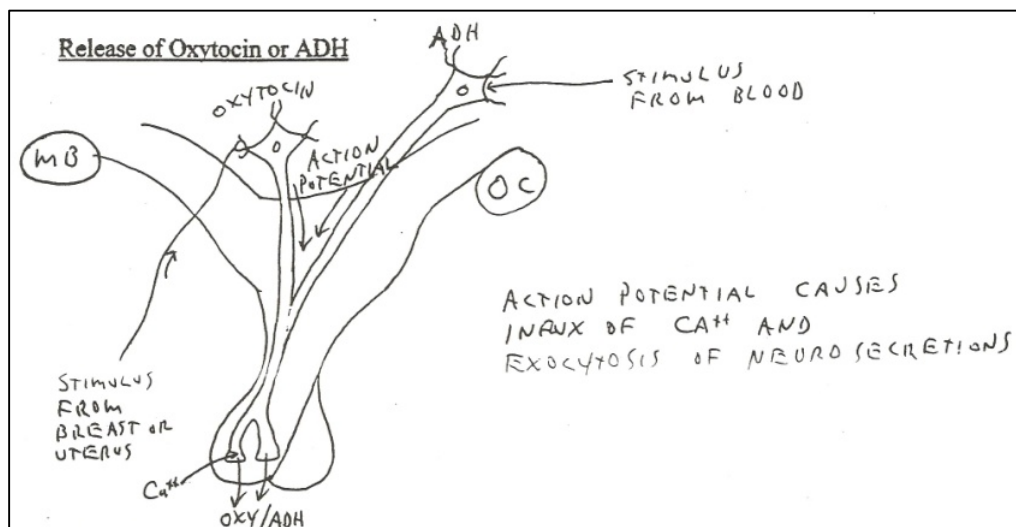 Release of Oxytocin or ADH
ADH
STIMULUS
FROM BLOOD
OXYTOCIN
MB
ACTION
POTENTIAL
OC
ACTION POTENTIAL CAUSES
INFLUX OF CA++ AND
EXOCYTOSIS OF NEUROSECRETIONS
STIMULUS
FROM
BREAST OR
UTERUS
Ca++
OXY/ADH